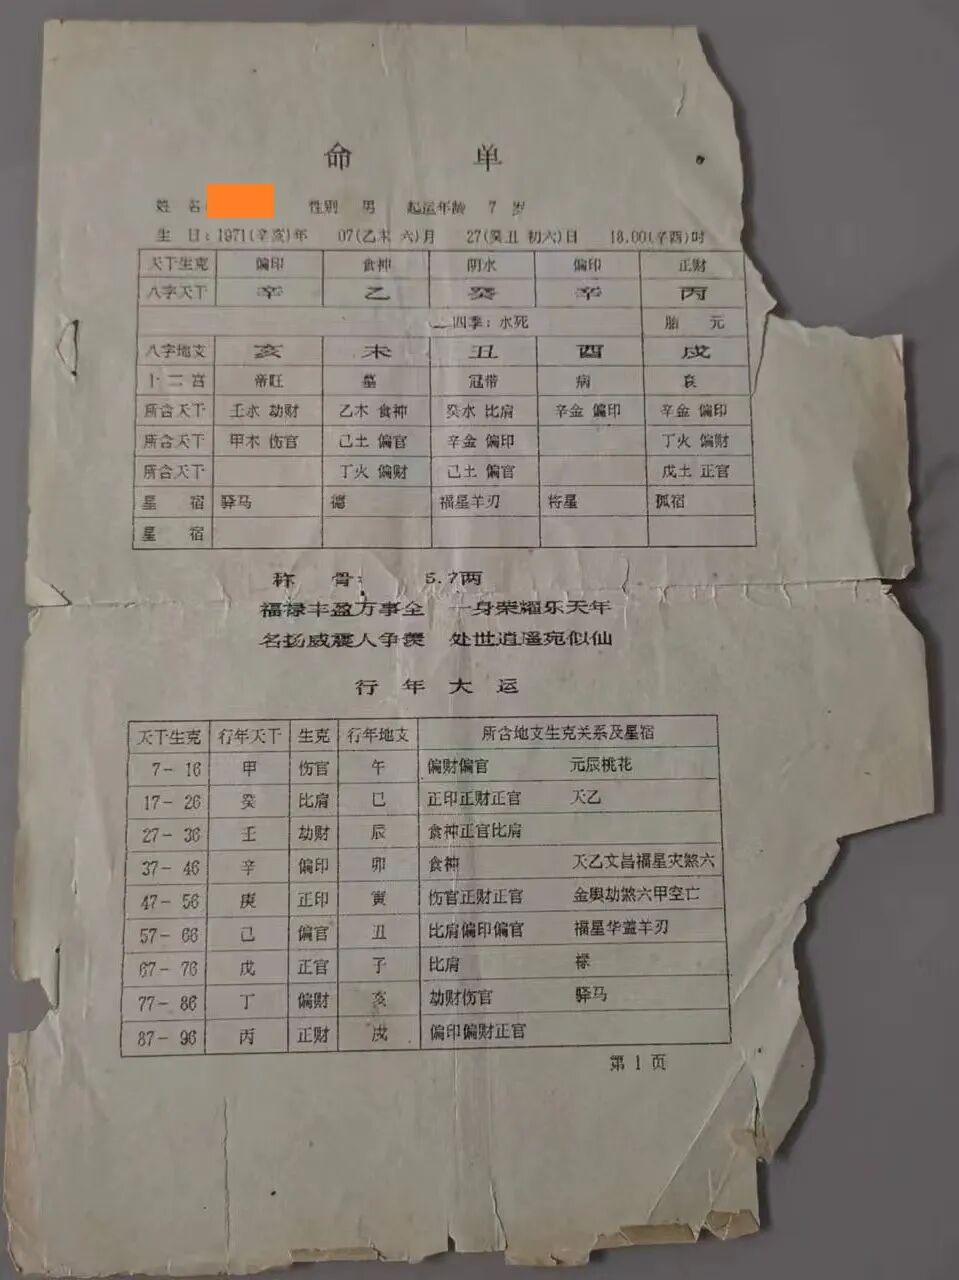 命 单
姓 名: 性别 男 起运年龄 7 岁
生 日: 1971(辛亥)年 07(乙未 六)月 27(癸丑 初六)日 18.00(辛酉)时
天干生克 偏印 食神 阴水 偏印 正财
八字天干 辛 乙 癸 辛 丙
四季: 水死 胎 元
八字地支 亥 未 丑 酉 戌
十二宫 帝旺 墓 冠带 病 衰
所含天干 壬水 劫财 乙木 食神 癸水 比肩 辛金 偏印 辛金 偏印
所含天干 甲木 伤官 己土 偏官 辛金 偏印 丁火 偏财
所含天干 丁火 偏财 己土 偏官 戊土 正官
星 宿 驿马 德 福星羊刃 将星 孤宿
星 宿
称 骨: 5.7两
福禄丰盈万事全 一身荣耀乐天年
名扬威震人争羡 处世逍遥宛似仙
行 年 大 运
天干生克 行年天干 生克 行年地支 所含地支生克关系及星宿
7- 16 甲 伤官 午 偏财偏官 元辰桃花
17- 26 癸 比肩 巳 正印正财正官 天乙
27- 36 壬 劫财 辰 食神正官比肩
37- 46 辛 偏印 卯 食神 天乙文昌福星灾煞六
47- 56 庚 正印 寅 伤官正财正官 金舆劫煞六甲空亡
57- 66 己 偏官 丑 比肩偏印偏官 福星华盖羊刃
67- 76 戊 正官 子 比肩 禄
77- 86 丁 偏财 亥 劫财伤官 驿马
87- 96 丙 正财 戌 偏印偏财正官
第 1 页